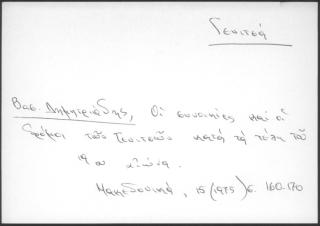 Γενιτσά
Βασ. Δημητριάδης, Οἱ συνοικίες καί οἱ
δρόμοι τῶν Γενιτσῶν κατά τά τέλη τοῦ
19ου αἰώνα.
Μακεδονικά, 15 (1975) σ. 160-170